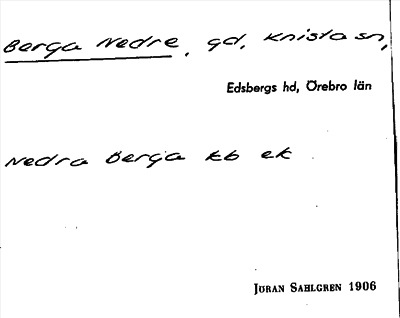 Berga Nedre, gd, Knista sn,
Edsbergs hd, Örebro län
Nedra Berga kb ek
Jöran Sahlgren 1906